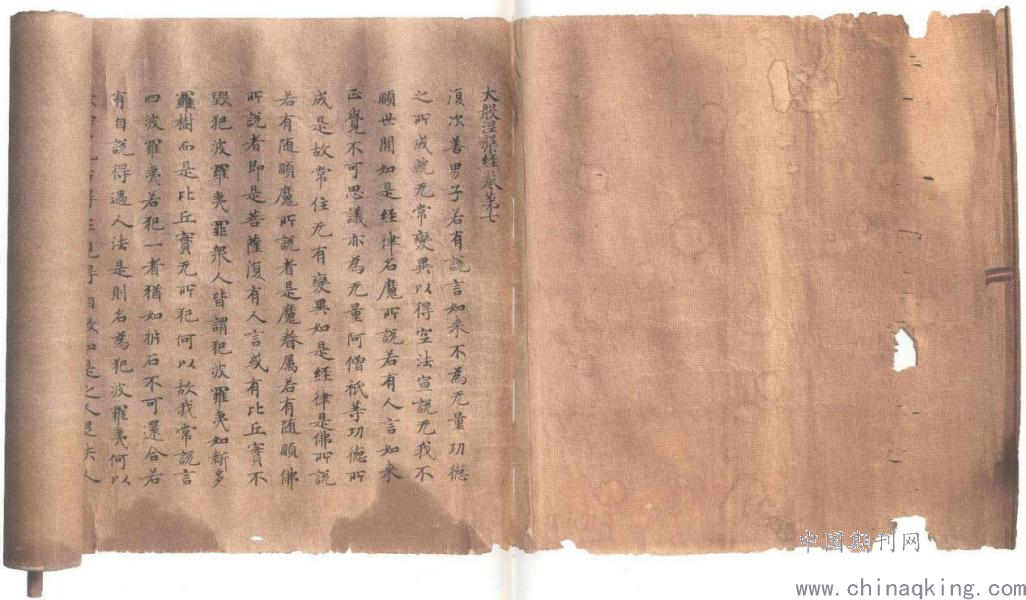 大般涅槃經卷第七
復次善男子若有說言如來不為无量功德
之所成就无常變異以得空法宣說无我不
順世間如是經律名魔所說若有人言如來
正覺不可思議亦為无量阿僧祇等功德所
成是故常住无有變異如是經律是佛所說
若有随順魔所說者是魔眷属若有随順佛
所說者即是菩薩復有人言或有比丘實不
毀犯波羅夷罪眾人皆謂犯波羅夷如斷多
羅樹而是比丘實无所犯何以故我常說言
四波羅夷若犯一者猶如析石不可還合若
有自說得過人法是則名為犯波羅夷何以
得 現得 故如是之人退失人
中国期刊网
www.chinaqking.com